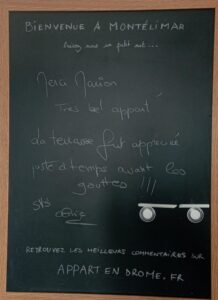 BIENVENUE A MONTÉLIMAR
laissez nous un petit mot...
Merci Marion
Très bel appart'
La terrasse fut apprécié
juste à temps avant les
gouttes !!!
RETROUVEZ LES MEILLEURS COMMENTAIRES SUR
APPART EN DROME.FR